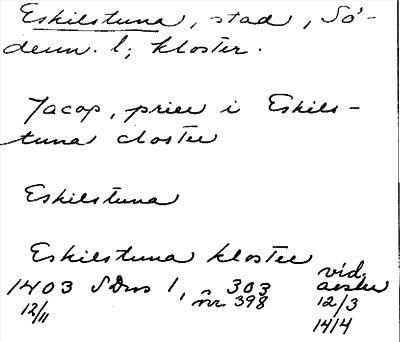 Eskilstuna, stad, Sö-
derm. l; kloster.
Jacop, prier i Eskils-
tuna closter
Eskilstuna
Eskilstuna kloster
1403 SDns 1, s 303 vid.
12/11 nr 398 avskr
12/3
1414